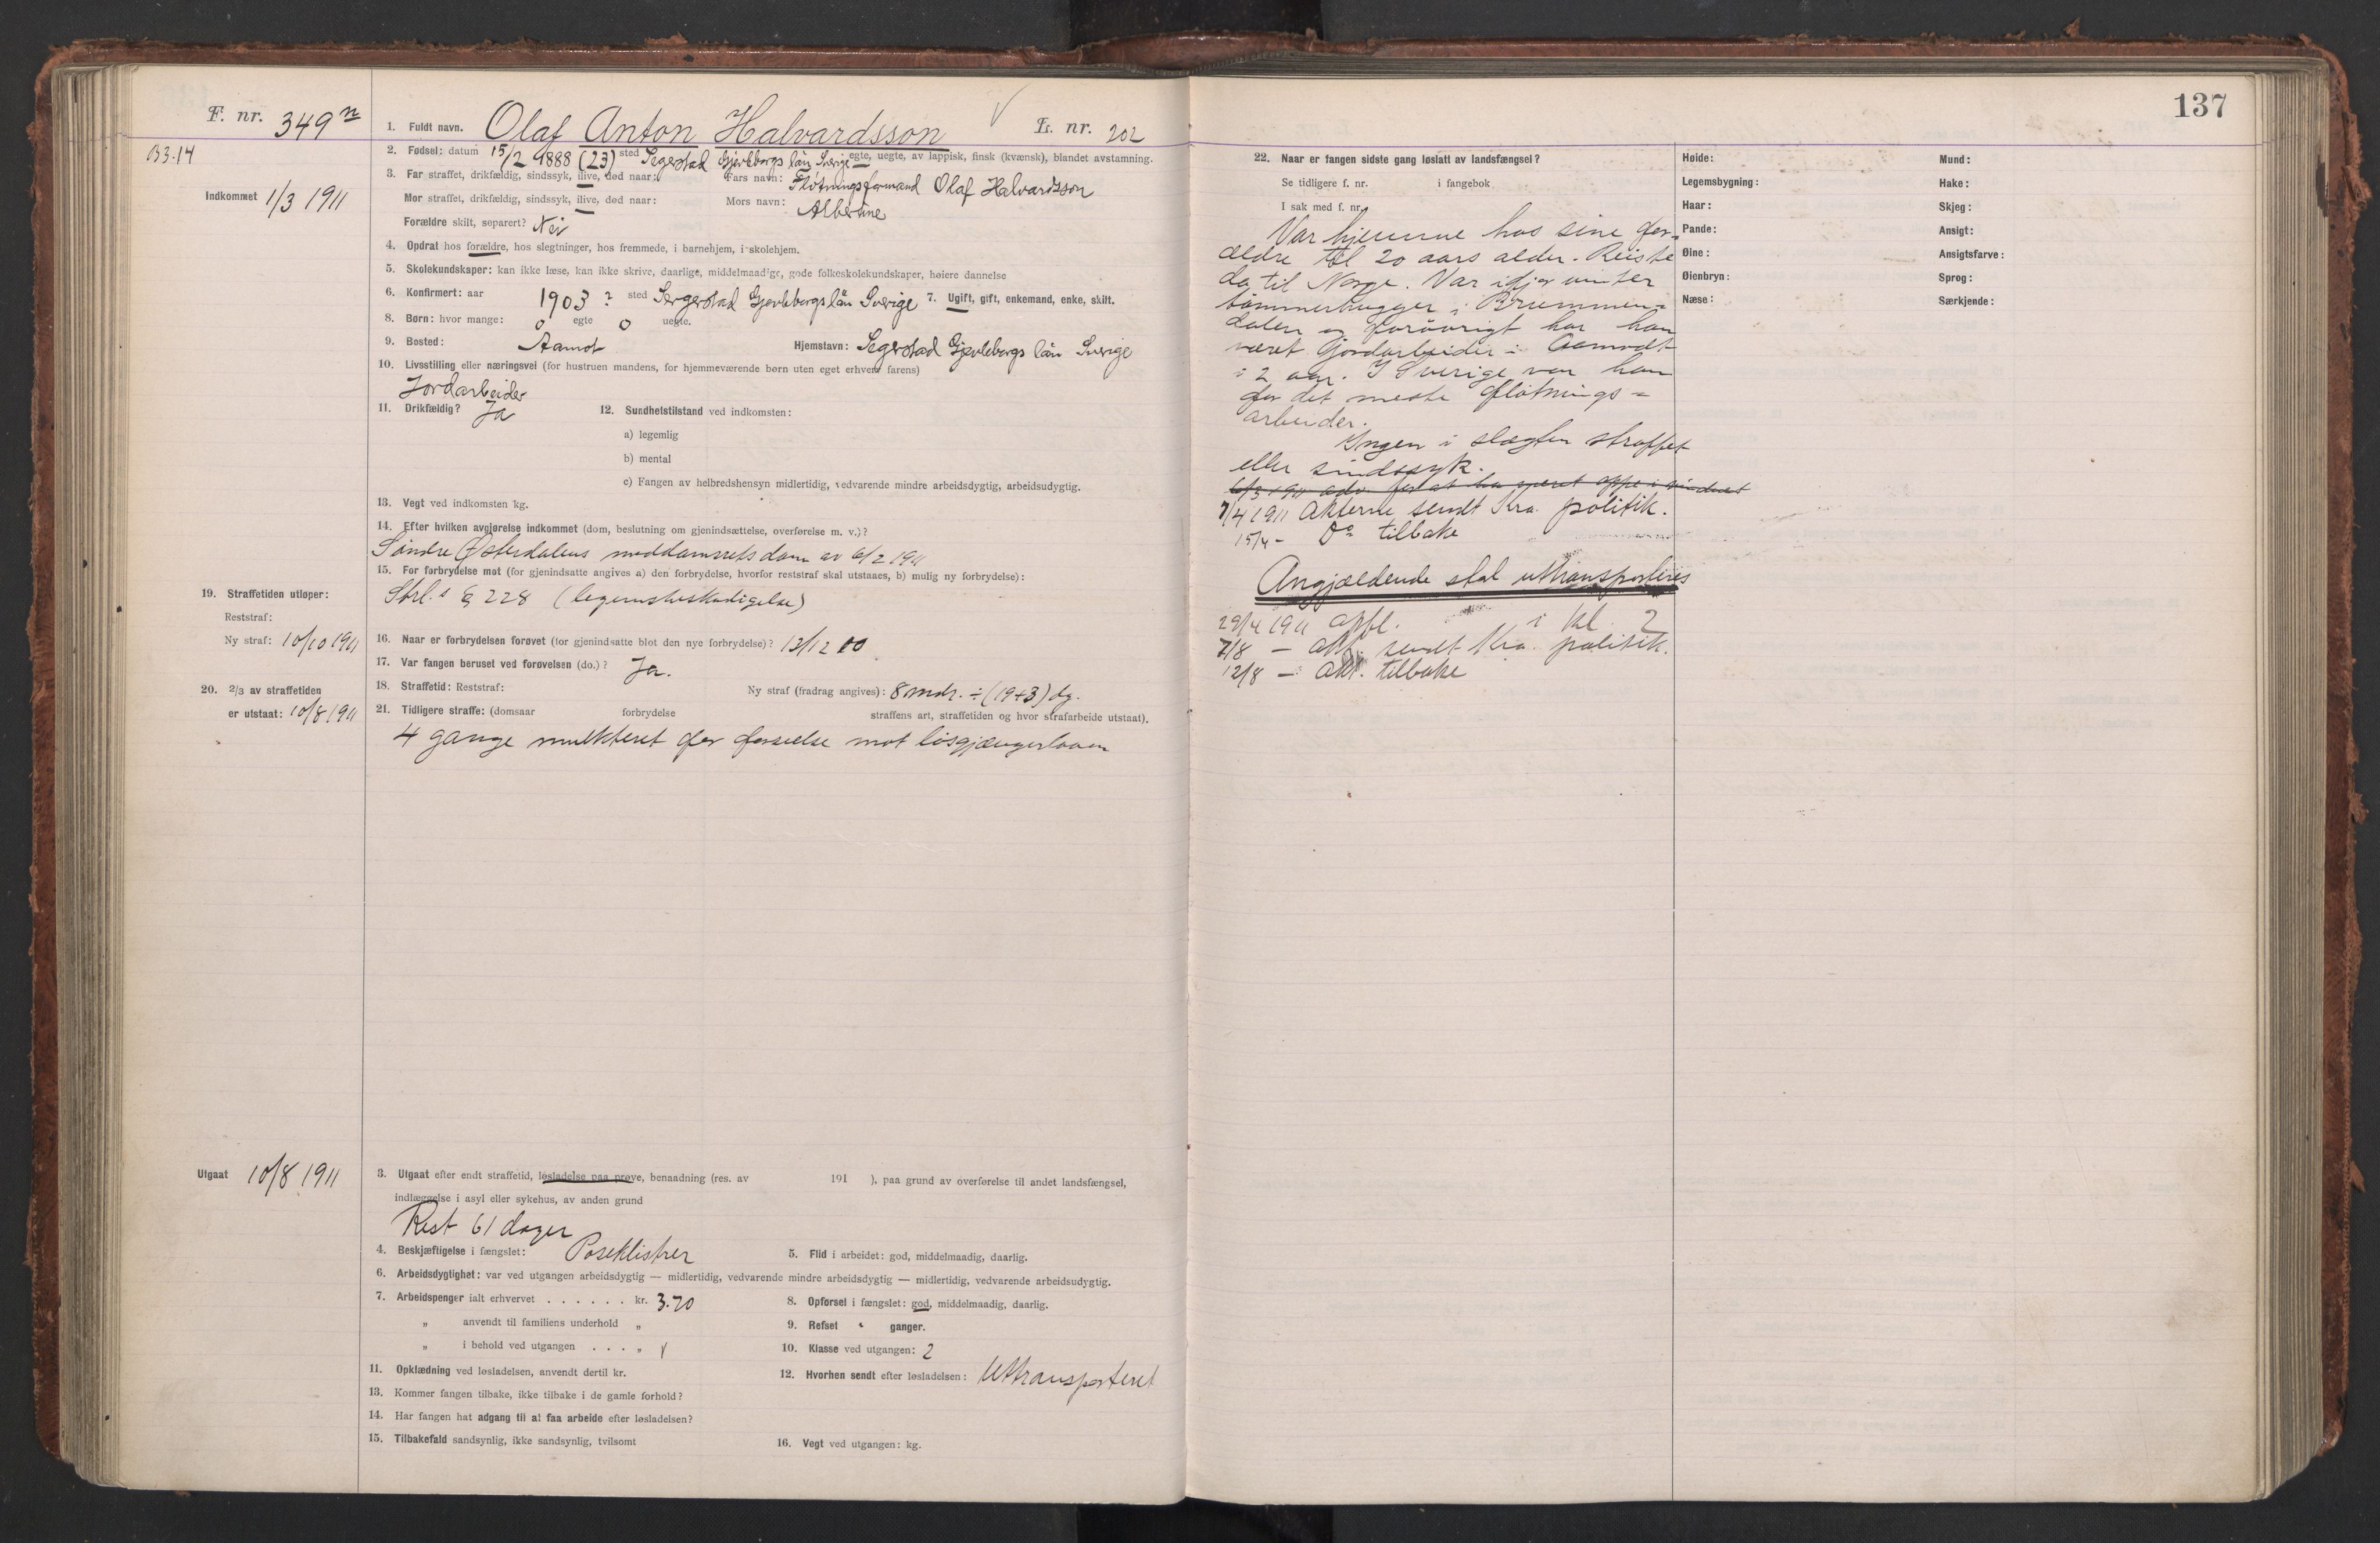 F. nr. 349 n
B3.14
Indkommet 1/3 1911
1. Fuldt navn. Olaf Anton Halvardsson L. nr. 202
2. Fødsel: datum 15/2 1888 (23) sted Segerstad Gjevleborgs län Sverige egte, uegte, av lappisk, finsk (kvænsk), blandet avstamning.
3. Far straffet, drikfældig, sindssyk, ilive, død naar: Fars navn: Fløtningsformand Olaf Halvardsson
Mor straffet, drikfældig, sindssyk, ilive, død naar: Mors navn: Albertine
Forældre skilt, separert? Nei
4. Opdrat hos forældre, hos slegtninger, hos fremmede, i barnehjem, i skolehjem.
5. Skolekundskaper: kan ikke læse, kan ikke skrive, daarlige, middelmaadige, gode folkeskolekundskaper, høiere dannelse
6. Konfirmert: aar 1903 ? sted Sergerstad Gjevleborgs län Sverige 7. Ugift, gift, enkemand, enke, skilt.
8. Børn: hvor mange: 0 egte 0 uegte.
9. Bosted: Aamot Hjemstavn: Segerstad Gjevleborgs län Sverige
10. Livsstilling eller næringsvei (for hustruen mandens, for hjemmeværende børn uten eget erhverv farens)
Jordarbeider
11. Drikfældig? Ja 12. Sundhetstilstand ved indkomsten:
a) legemlig
b) mental
c) Fangen av helbredshensyn midlertidig, vedvarende mindre arbeidsdygtig, arbeidsudygtig.
13. Vegt ved indkomsten kg.
14. Efter hvilken avgjørelse indkommet (dom, beslutning om gjenindsættelse, overførelse m. v.)?
Søndre Østerdalens meddomsrets dom av 6/2 1911
15. For forbrydelse mot (for gjenindsatte angives a) den forbrydelse, hvorfor reststraf skal utstaaes, b) mulig ny forbrydelse):
Strl.s § 228 (legemsbeskadigelse)
19. Straffetiden utløper:
Reststraf:
Ny straf: 10/10 1911
16. Naar er forbrydelsen forøvet (for gjenindsatte blot den nye forbrydelse)? 13/12 10
17. Var fangen beruset ved forøvelsen (do.)? Ja.
20. 2/3 av straffetiden
er utstaat: 10/8 1911
18. Straffetid: Reststraf: Ny straf (fradrag angives): 8 mdr. ÷ (19+3) dg.
21. Tidligere straffe: (domsaar forbrydelse straffens art, straffetiden og hvor strafarbeide utstaat).
4 gange mulkteret for forseelse mot løsgjængerloven
Utgaat 10/8 1911
3. Utgaat efter endt straffetid, løsladelse paa prøve, benaadning (res. av 191 ), paa grund av overførelse til andet landsfængsel,
indlæggelse i asyl eller sykehus, av anden grund
Rest 61 dager
4. Beskjæftigelse i fængslet: Poseklistrer 5. Flid i arbeidet: god, middelmaadig, daarlig.
6. Arbeidsdygtighet: var ved utgangen arbeidsdygtig — midlertidig, vedvarende mindre arbeidsdygtig — midlertidig, vedvarende arbeidsudygtig.
7. Arbeidspenger ialt erhvervet . . . . . . kr. 3.70 8. Opførsel i fængslet: god, middelmaadig, daarlig.
„ anvendt til familiens underhold „ 9. Refset ganger.
„ i behold ved utgangen . . . „ 10. Klasse ved utgangen: 2
11. Opklædning ved løsladelsen, anvendt dertil kr. 12. Hvorhen sendt efter løsladelsen: Uttransporteret
13. Kommer fangen tilbake, ikke tilbake i de gamle forhold?
14. Har fangen hat adgang til at faa arbeide efter løsladelsen?
15. Tilbakefald sandsynlig, ikke sandsynlig, tvilsomt 16. Vegt ved utgangen: kg.
137
22. Naar er fangen sidste gang løslatt av landsfængsel?
Se tidligere f. nr. i fangebok
I sak med f. nr.
Var hjemme hos sine for-
ældre til 20 aars alder. Reiste
da til Norge. Var i fjor vinter
tømmerhugger i Brummen-
dalen og forøvrigt har han
været Jordarbeider i Aamodt
i 2 aar. I Sverige var han
for det meste fløtnings-
arbeider.
Ingen i slægten straffet
eller sindssyk.
6/3 1911 adv. for at ha været oppe i vinduet
7/4 1911 Akterne sendt Kra. politik.
15/4 - Do tilbake
Angjældende skal uttransporteres
29/4 1911 opfl. i kl. 2
7/8 — akt. sendt Kra. politik.
12/8 — akt. tilbake
Høide:
Legemsbygning:
Haar:
Pande:
Øine:
Øienbryn:
Næse:
Mund:
Hake:
Skjeg:
Ansigt:
Ansigtsfarve:
Sprog:
Særkjende: